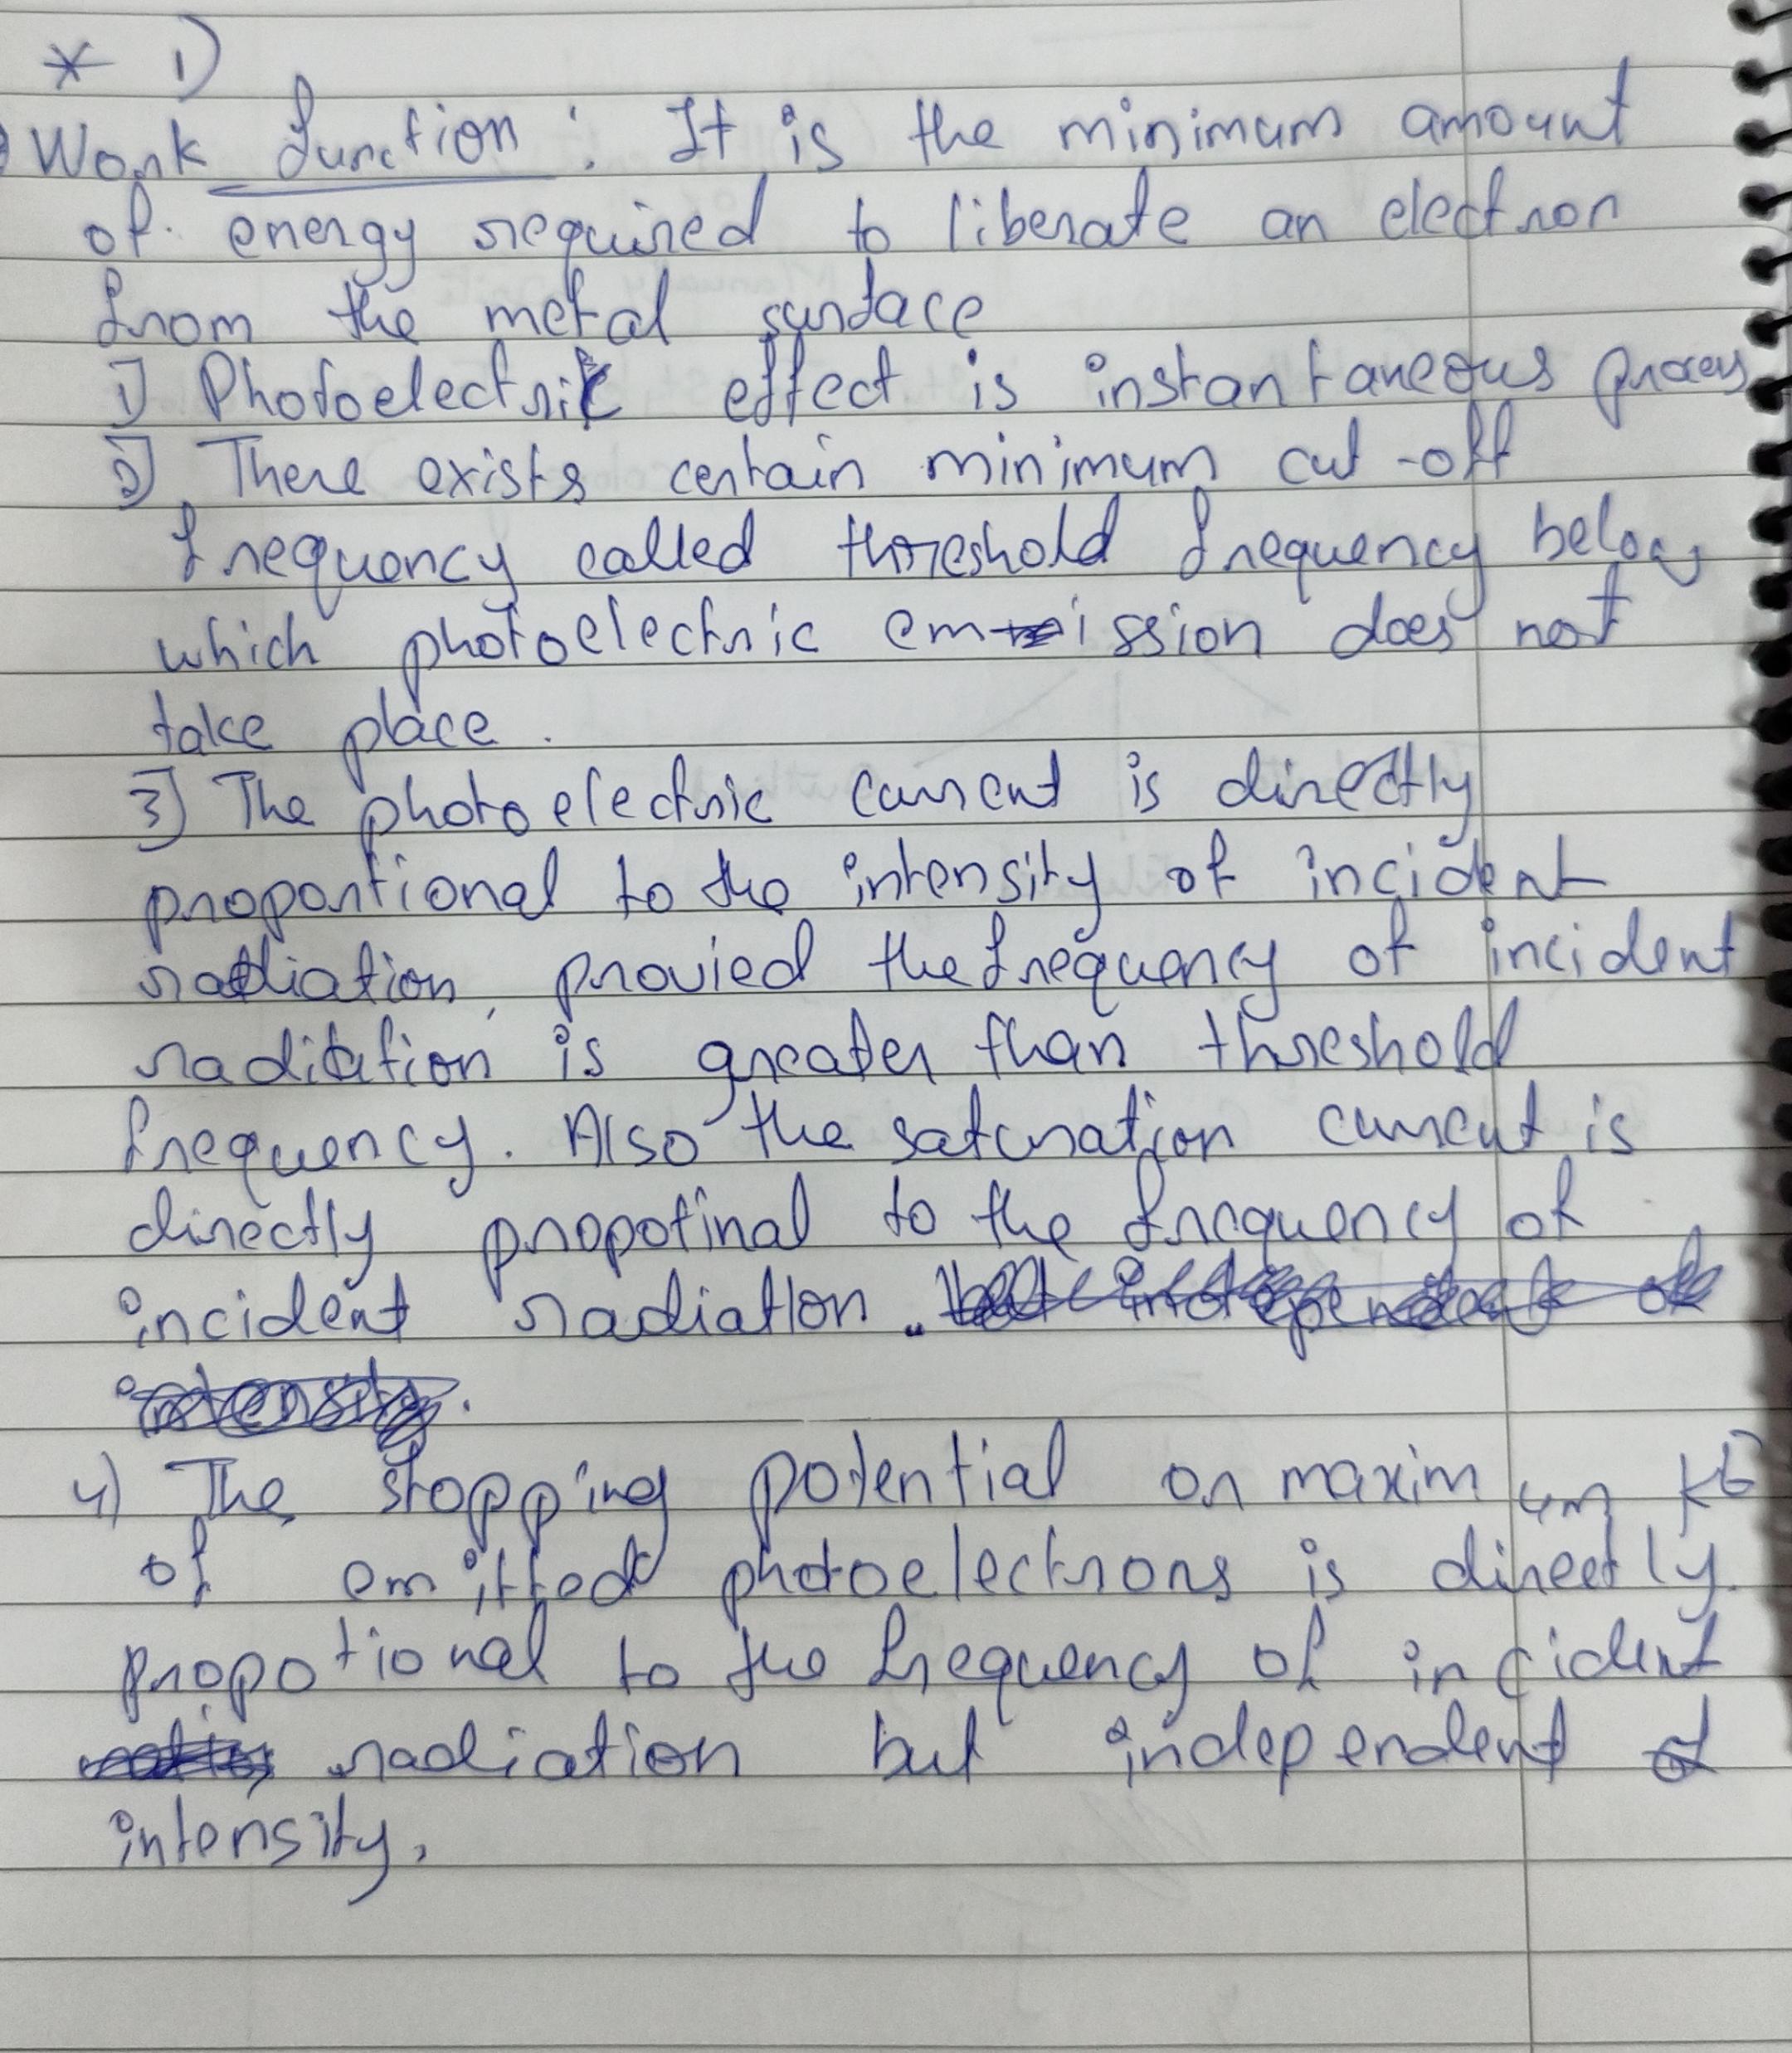 * 1)
Work function : It is the minimum amount
of energy required to liberate an electron
from the metal surface
1] Photoelectric effect is instantaneous process
2] There exists certain minimum cut-off
frequency called threshold frequency below
which photoelectric emission does not
take place.
3] The photoelectric current is directly
proportional to the intensity of incident
radiation, provied the frequency of incident
radiation is greater than threshold
frequency. Also the saturation current is
directly propotinal to the frequency of
incident radiation.
4) The stopping potential or maximum KE
of emitted photoelectrons is directly
propotional to the frequency of incident
radiation but independent of
intensity.